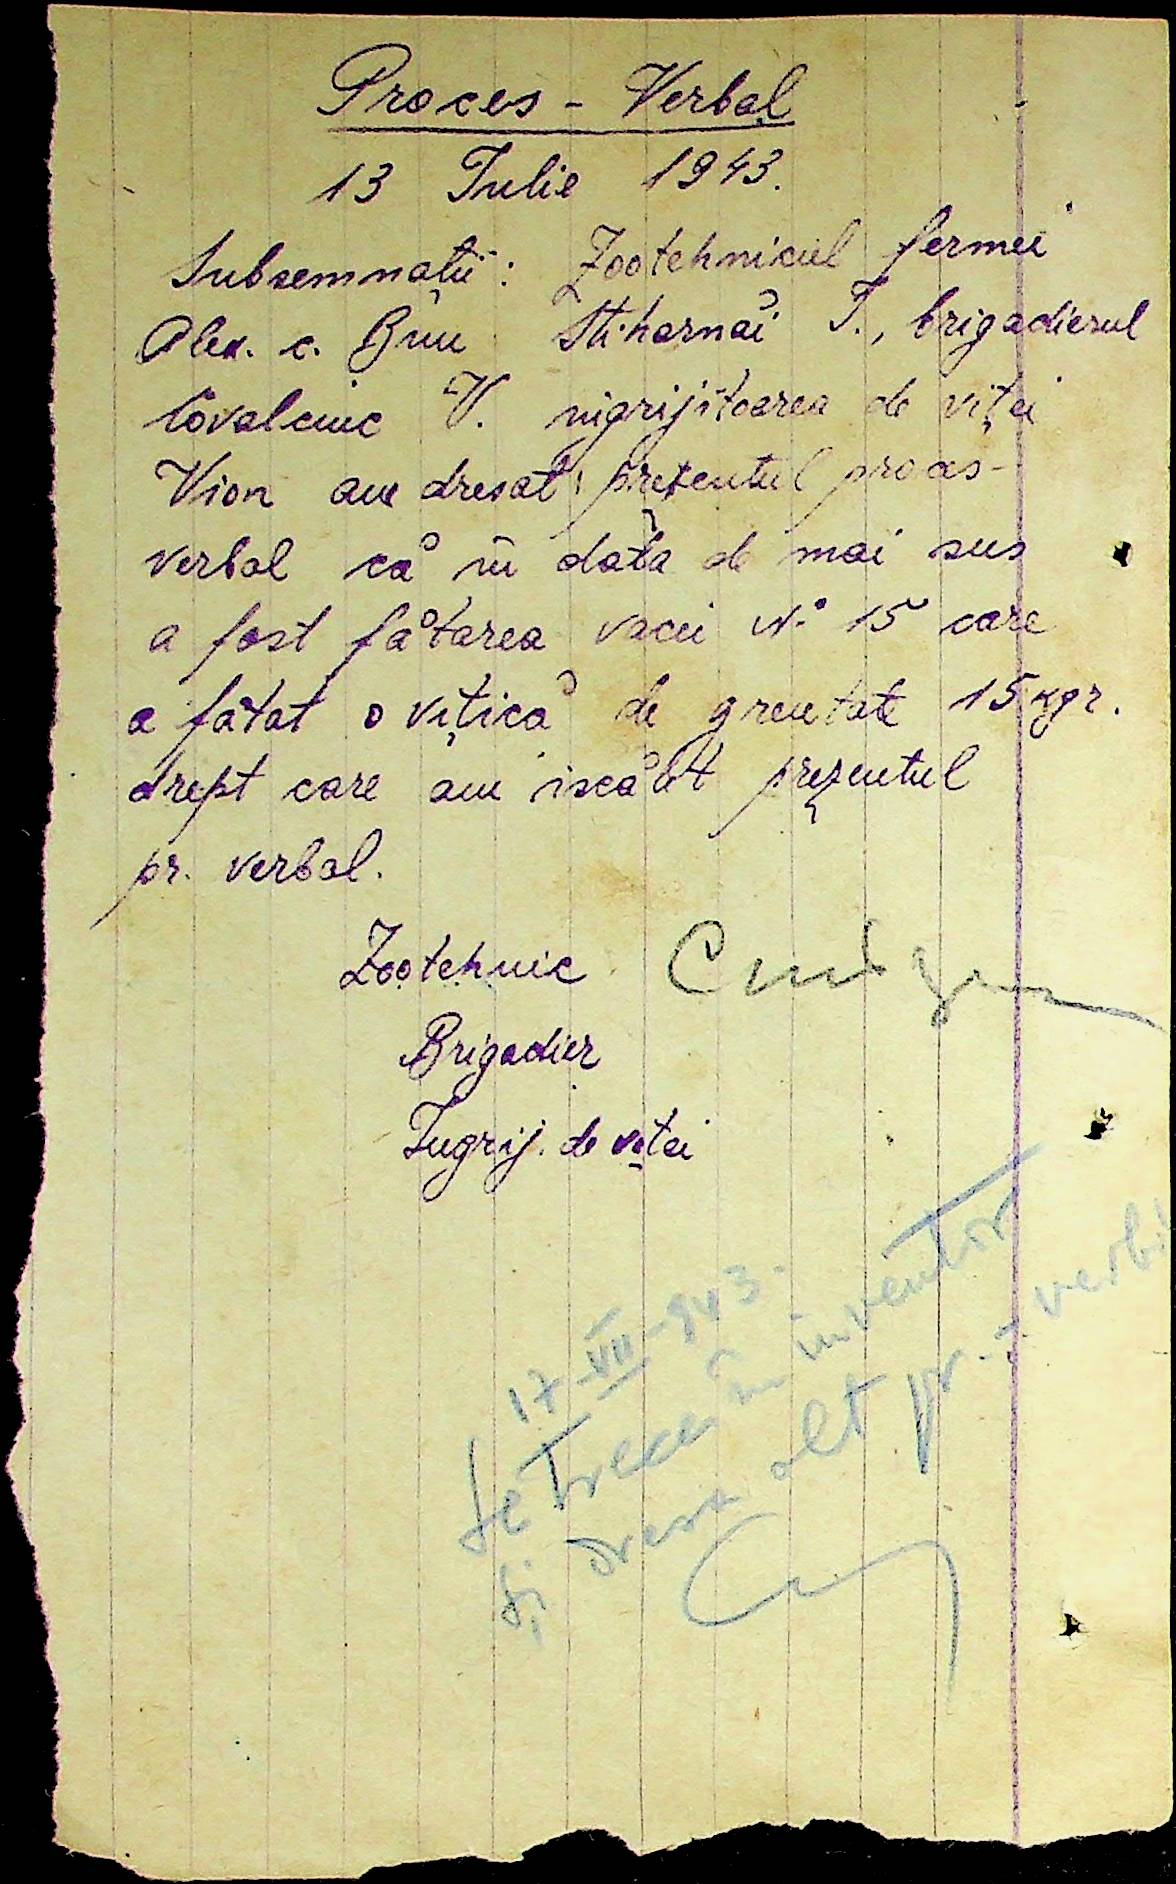 Proces - Verbal
13 Iulie 1943.
Subsemnații: Zootehnicul fermei
Alex. c. Bun Stiharnăi T., brigadierul
Covalciuc V. nigrijitoarea de viței
Vion am dresat prezentul proces-
verbal că în data de mai sus
a fost fătarea vacii No 15 care
a fătat o vițică de greutate 15 kgr.
drept care am iscălit prezentul
pr. verbal.
Zootehnic
Brigadier
Îngrij. de viței
17-VII-943.
Se trece în inventar
și dresa alt pr.-verb